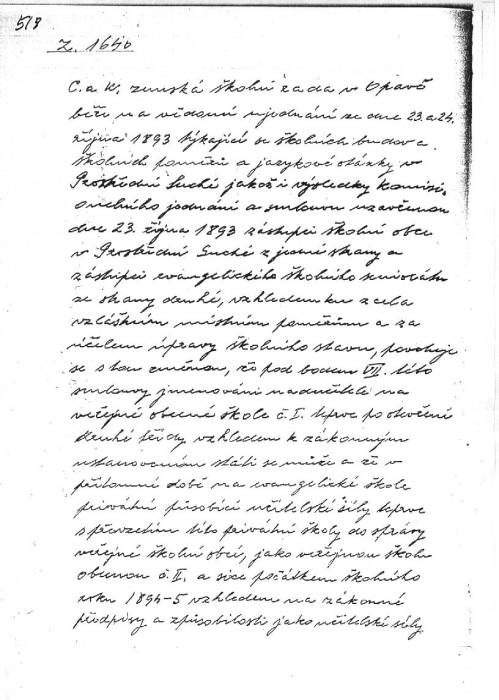 578
Z. 1640
C. a K. zemská školní rada v Opavě
béře na vědomí ujednání ze dne 23. a 24.
října 1893 týkající se školních budov a
školních poměrů a jazykové otázky v
Prostřední Suché jakož i výsledky komisi-
onelního jednání a smlouvu uzavřenou
dne 23. října 1893 zástupci školní obce
v Prostřední Suché z jedné strany a
zástupci evangelického školního seniorátu
ze strany druhé, vzhledem ku zcela
vzláštním místním poměrům a za
účelem úpravy školního stavu, povoluje
se s tou změnou, že pod bodem VII. této
smlouvy jmenování nadučitele na
veřejné obecné škole č. I. teprve po otevření
druhé třídy vzhledem k zákonným
ustanovením státi se může a že v
přítomné době na evangelické škole
privátní působící učitelské síly teprve
s převzetím této privátní školy do správy
veřejné školní obcí, jako veřejnou školu
obecnou č. II. a sice počátkem školního
roku 1894-5 vzhledem na zákonné
předpisy a způsobilosti jako učitelské síly